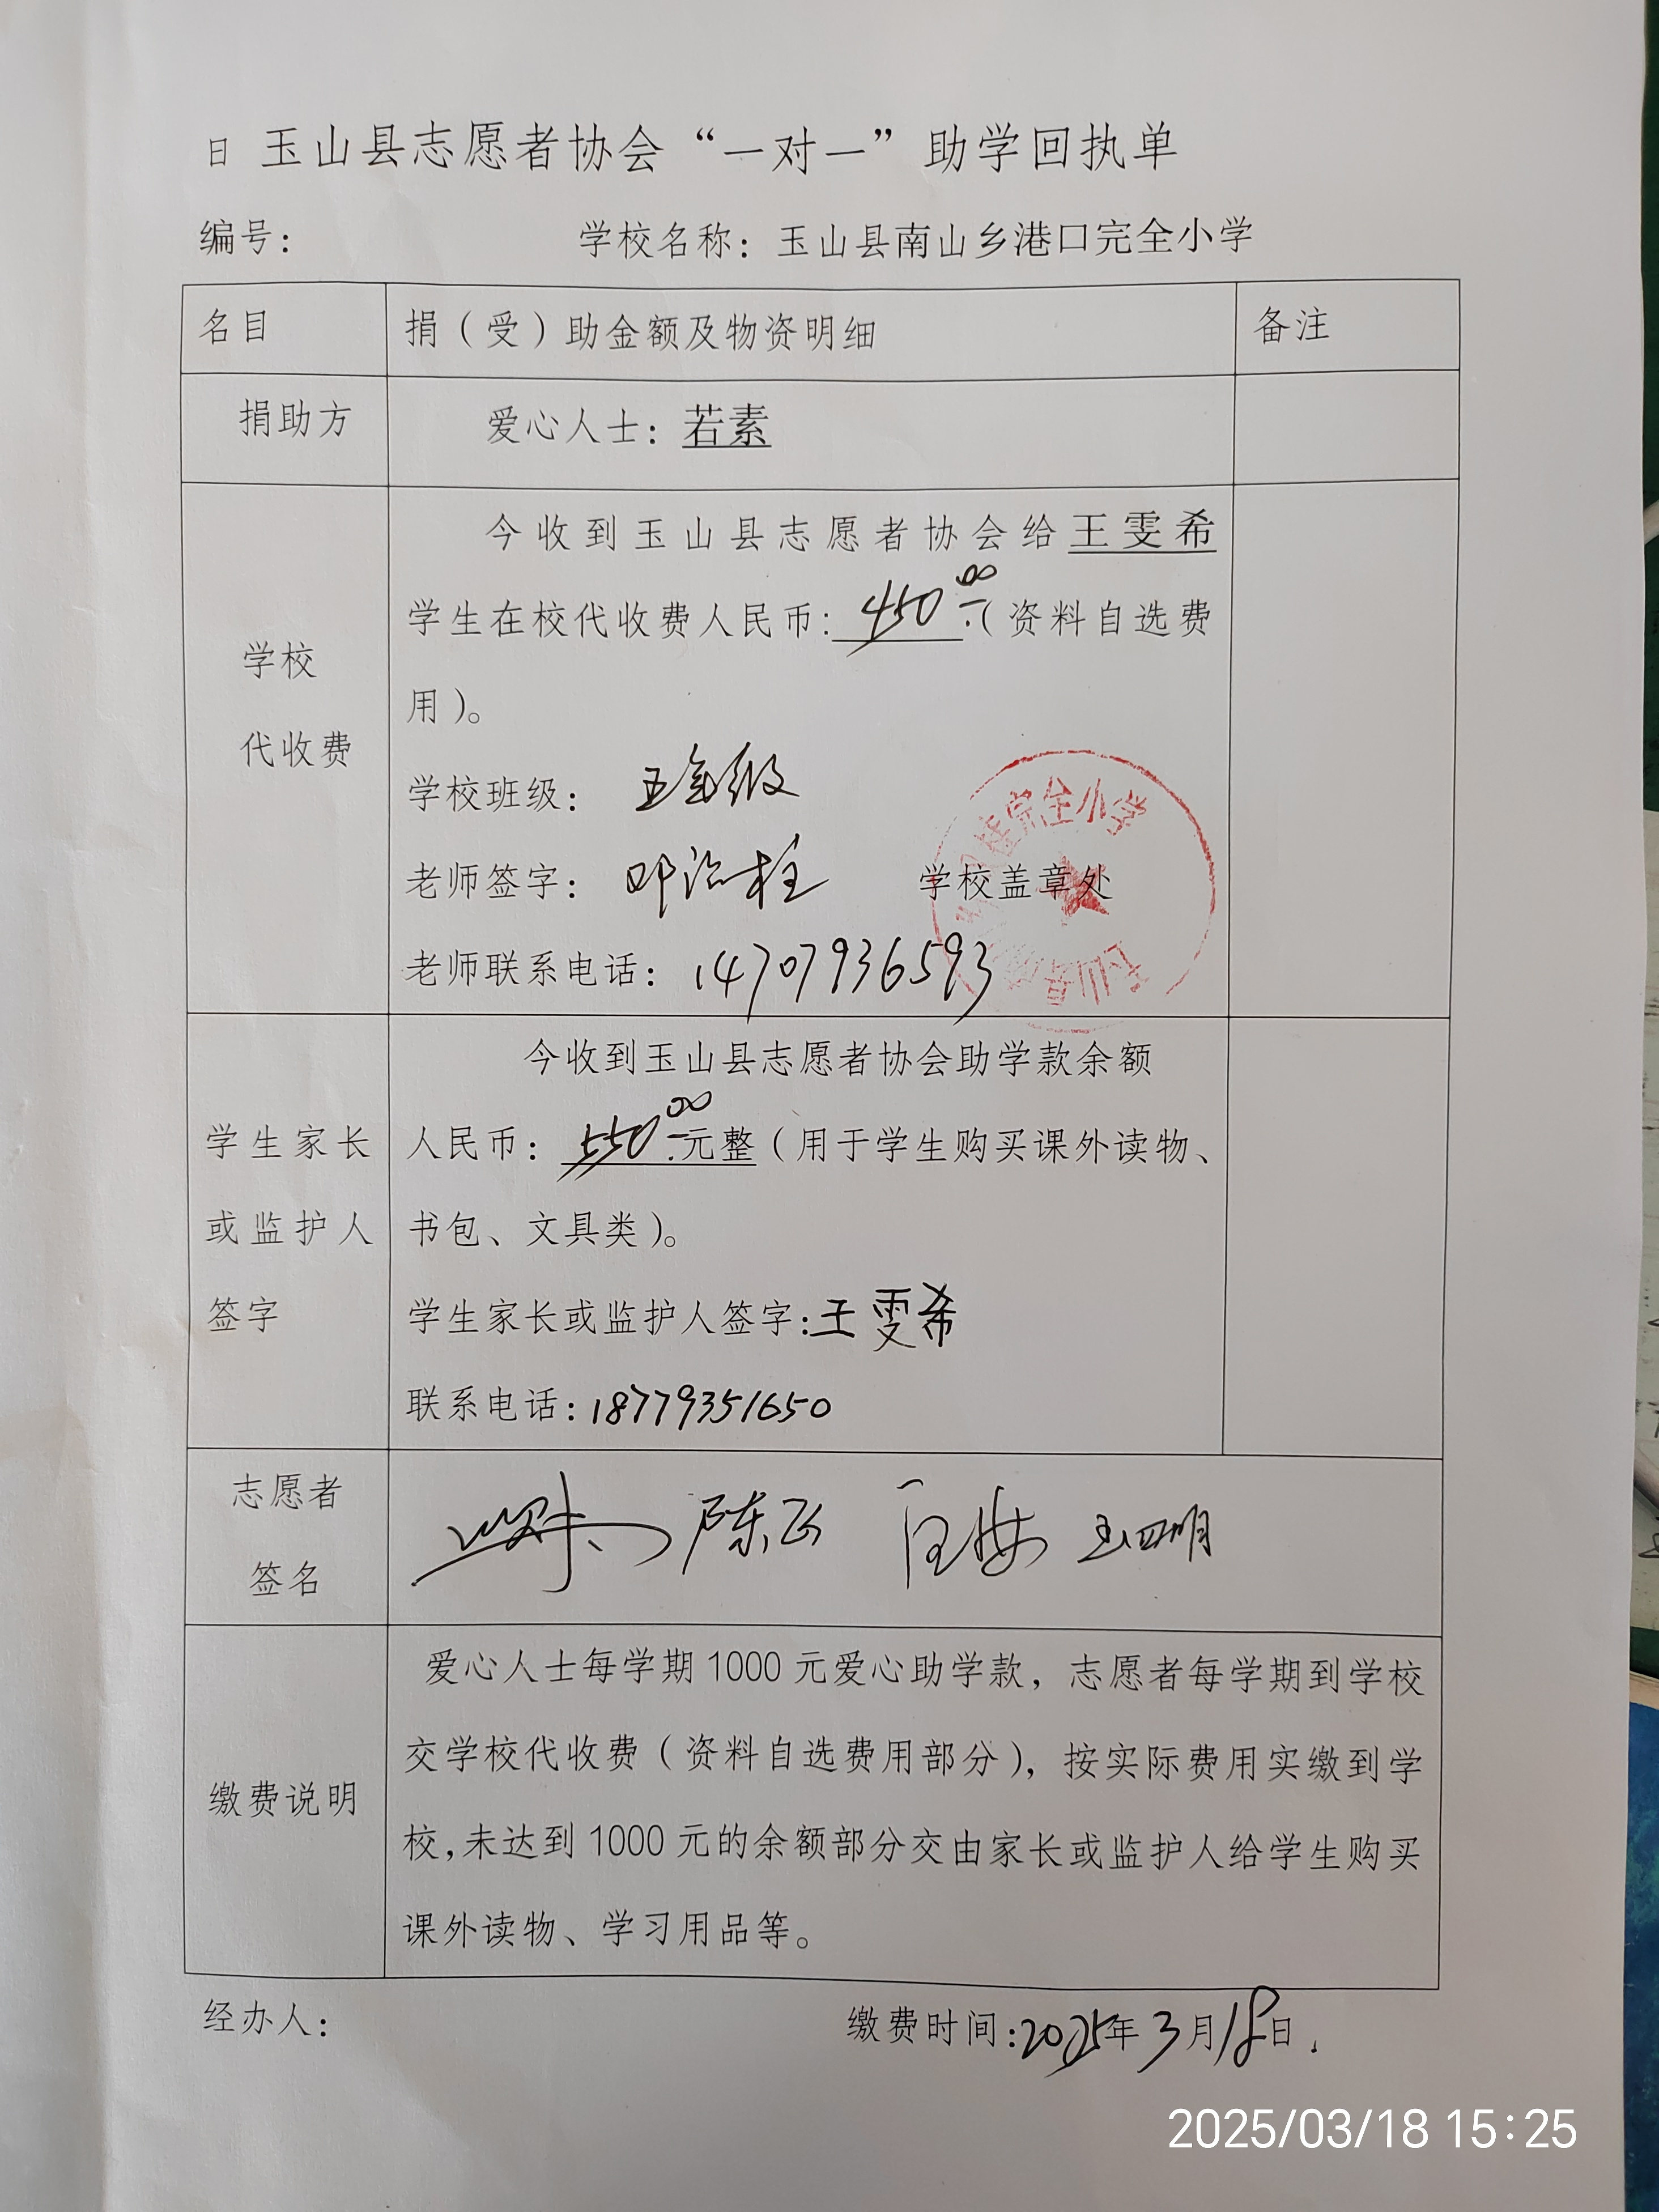 日 玉山县志愿者协会“一对一”助学回执单
编号： 学校名称：玉山县南山乡港口完全小学
名目 捐（受）助金额及物资明细 备注
捐助方 爱心人士：若素
今收到玉山县志愿者协会给王雯希
学生在校代收费人民币：450.00（资料自选费
用）。
学校
代收费
学校班级：五年级
老师签字： 学校盖章处
完全小学
玉山县
老师联系电话：14707936593
今收到玉山县志愿者协会助学款余额
人民币：550.00元整（用于学生购买课外读物、
书包、文具类）。
学生家长
或监护人
签字
学生家长或监护人签字：王雯希
联系电话：18779351650
志愿者
签名
陈云 王四明
爱心人士每学期1000元爱心助学款，志愿者每学期到学校
交学校代收费（资料自选费用部分），按实际费用实缴到学
校，未达到1000元的余额部分交由家长或监护人给学生购买
课外读物、学习用品等。
缴费说明
经办人： 缴费时间：2025年3月18日.
2025/03/18 15:25